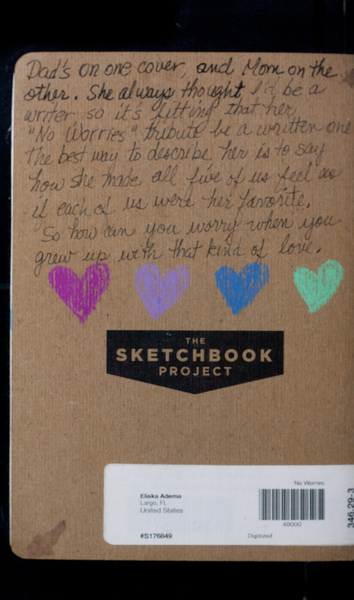 Dad's on one cover, and Mom on the
other. She always thought I'd be a
writer so it's fitting that her
"No Worries" tribute be a written one
The best way to describe her is to say
how she made all five of us feel as
if each of us were her favorite.
So how can you worry when you
grew up with that kind of love.
THE
SKETCHBOOK
PROJECT
No Worries
Eliska Adema
Largo, FL
United States
49000
#S176649
Digitized
346.29-3